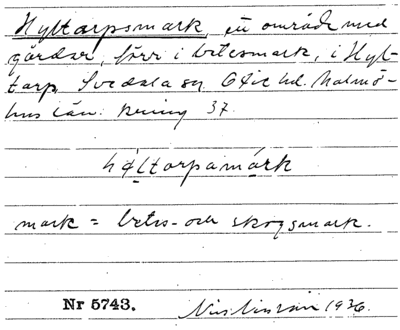 Hyltarpsmark, ett område med
gårdar, förr i betesmark, i Hyl-
tarp, Svedala sn, Oxie hd. Malmö-
hus län. Kuning 37.
håltarpsmárk
mark = betes- och skogsmark.
Nr 5743. 1936.